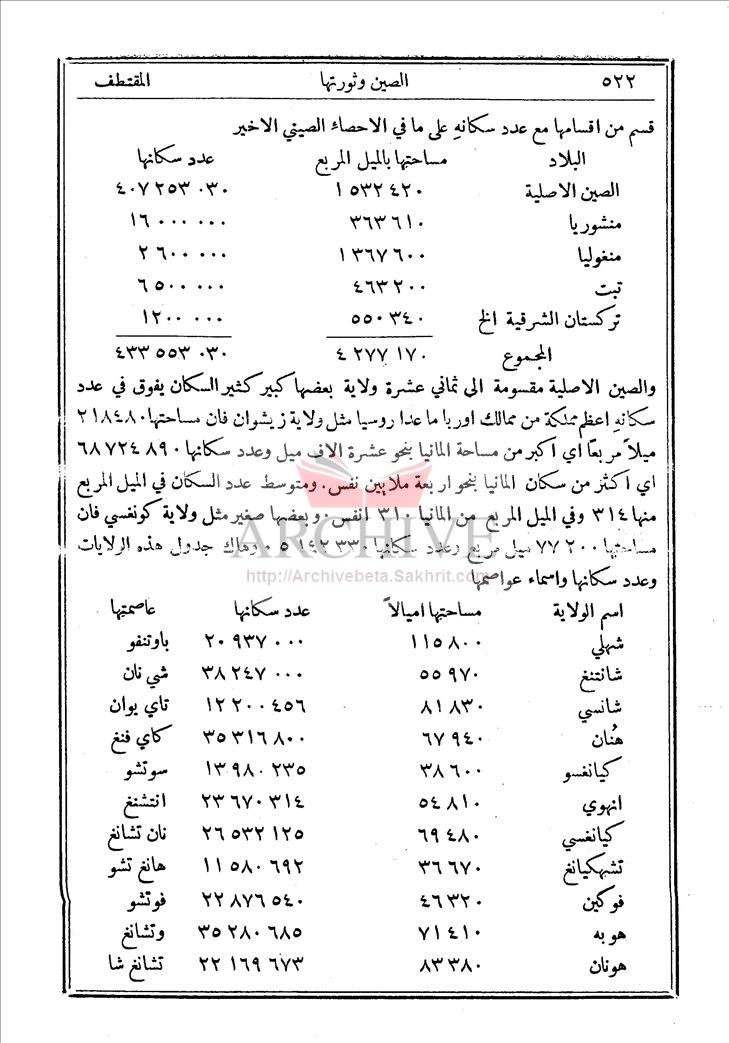 ٥٢٢ الصين وثورتها المقتطف
قسم من اقسامها مع عدد سكانهِ على ما في الاحصاء الصيني الاخير
البلاد مساحتها بالميل المربع عدد سكانها
الصين الاصلية ١٥٣٢٤٢٠ ٤٠٧٢٥٣٠٣٠
منشوريا ٣٦٣٦١٠ ١٦٠٠٠٠٠٠
منغوليا ١٣٦٧٦٠٠ ٢٦٠٠٠٠٠
تبت ٤٦٣٢٠٠ ٦٥٠٠٠٠٠
تركستان الشرقية الخ ٥٥٠٣٤٠ ١٢٠٠٠٠٠
المجموع ٤٢٧٧١٧٠ ٤٣٣٥٥٣٠٣٠
والصين الاصلية مقسومة الى ثماني عشرة ولاية بعضها كبير كثير السكان يفوق في عدد
سكانهِ اعظم مملكة من ممالك اوربا ما عدا روسيا مثل ولاية زيشوان فان مساحتها ٢١٨٤٨٠
ميلاً مربعاً اي اكبر من مساحة المانيا بنحو عشرة الاف ميل وعدد سكانها ٦٨٧٢٤٨٩٠
اي اكثر من سكان المانيا بنحو اربعة ملايين نفس. ومتوسط عدد السكان في الميل المربع
منها ٣١٤ وفي الميل المربع من المانيا ٣١٠ انفس. وبعضها صغير مثل ولاية كونغسي فان
مساحتها ٧٧٢٠٠ ميل مربع وعدد سكانها ٥١٤٢٣٣٠. وهاك جدول هذه الولايات
وعدد سكانها واسماء عواصمها
ARCHIVE
http://Archivebeta.Sakhrit.com
اسم الولاية مساحتها اميالاً عدد سكانها عاصمتها
شهلي ١١٥٨٠٠ ٢٠٩٣٧٠٠٠ باوتنفو
شانتنغ ٥٥٩٧٠ ٣٨٢٤٧٠٠٠ شي نان
شانسي ٨١٨٣٠ ١٢٢٠٠٤٥٦ تاي يوان
هُنان ٦٧٩٤٠ ٣٥٣١٦٨٠٠ كاي فنغ
كيانغسو ٣٨٦٠٠ ١٣٩٨٠٢٣٥ سوتشو
انهوي ٥٤٨١٠ ٢٣٦٧٠٣١٤ انتشنغ
كيانغسي ٦٩٤٨٠ ٢٦٥٣٢١٢٥ نان تشانغ
تشهكيانغ ٣٦٦٧٠ ١١٥٨٠٦٩٢ هانغ تشو
فوكين ٤٦٣٢٠ ٢٢٨٧٦٥٤٠ فوتشو
هوبه ٧١٤١٠ ٣٥٢٨٠٦٨٥ وتشانغ
هونان ٨٣٣٨٠ ٢٢١٦٩٦٧٣ تشانغ شا